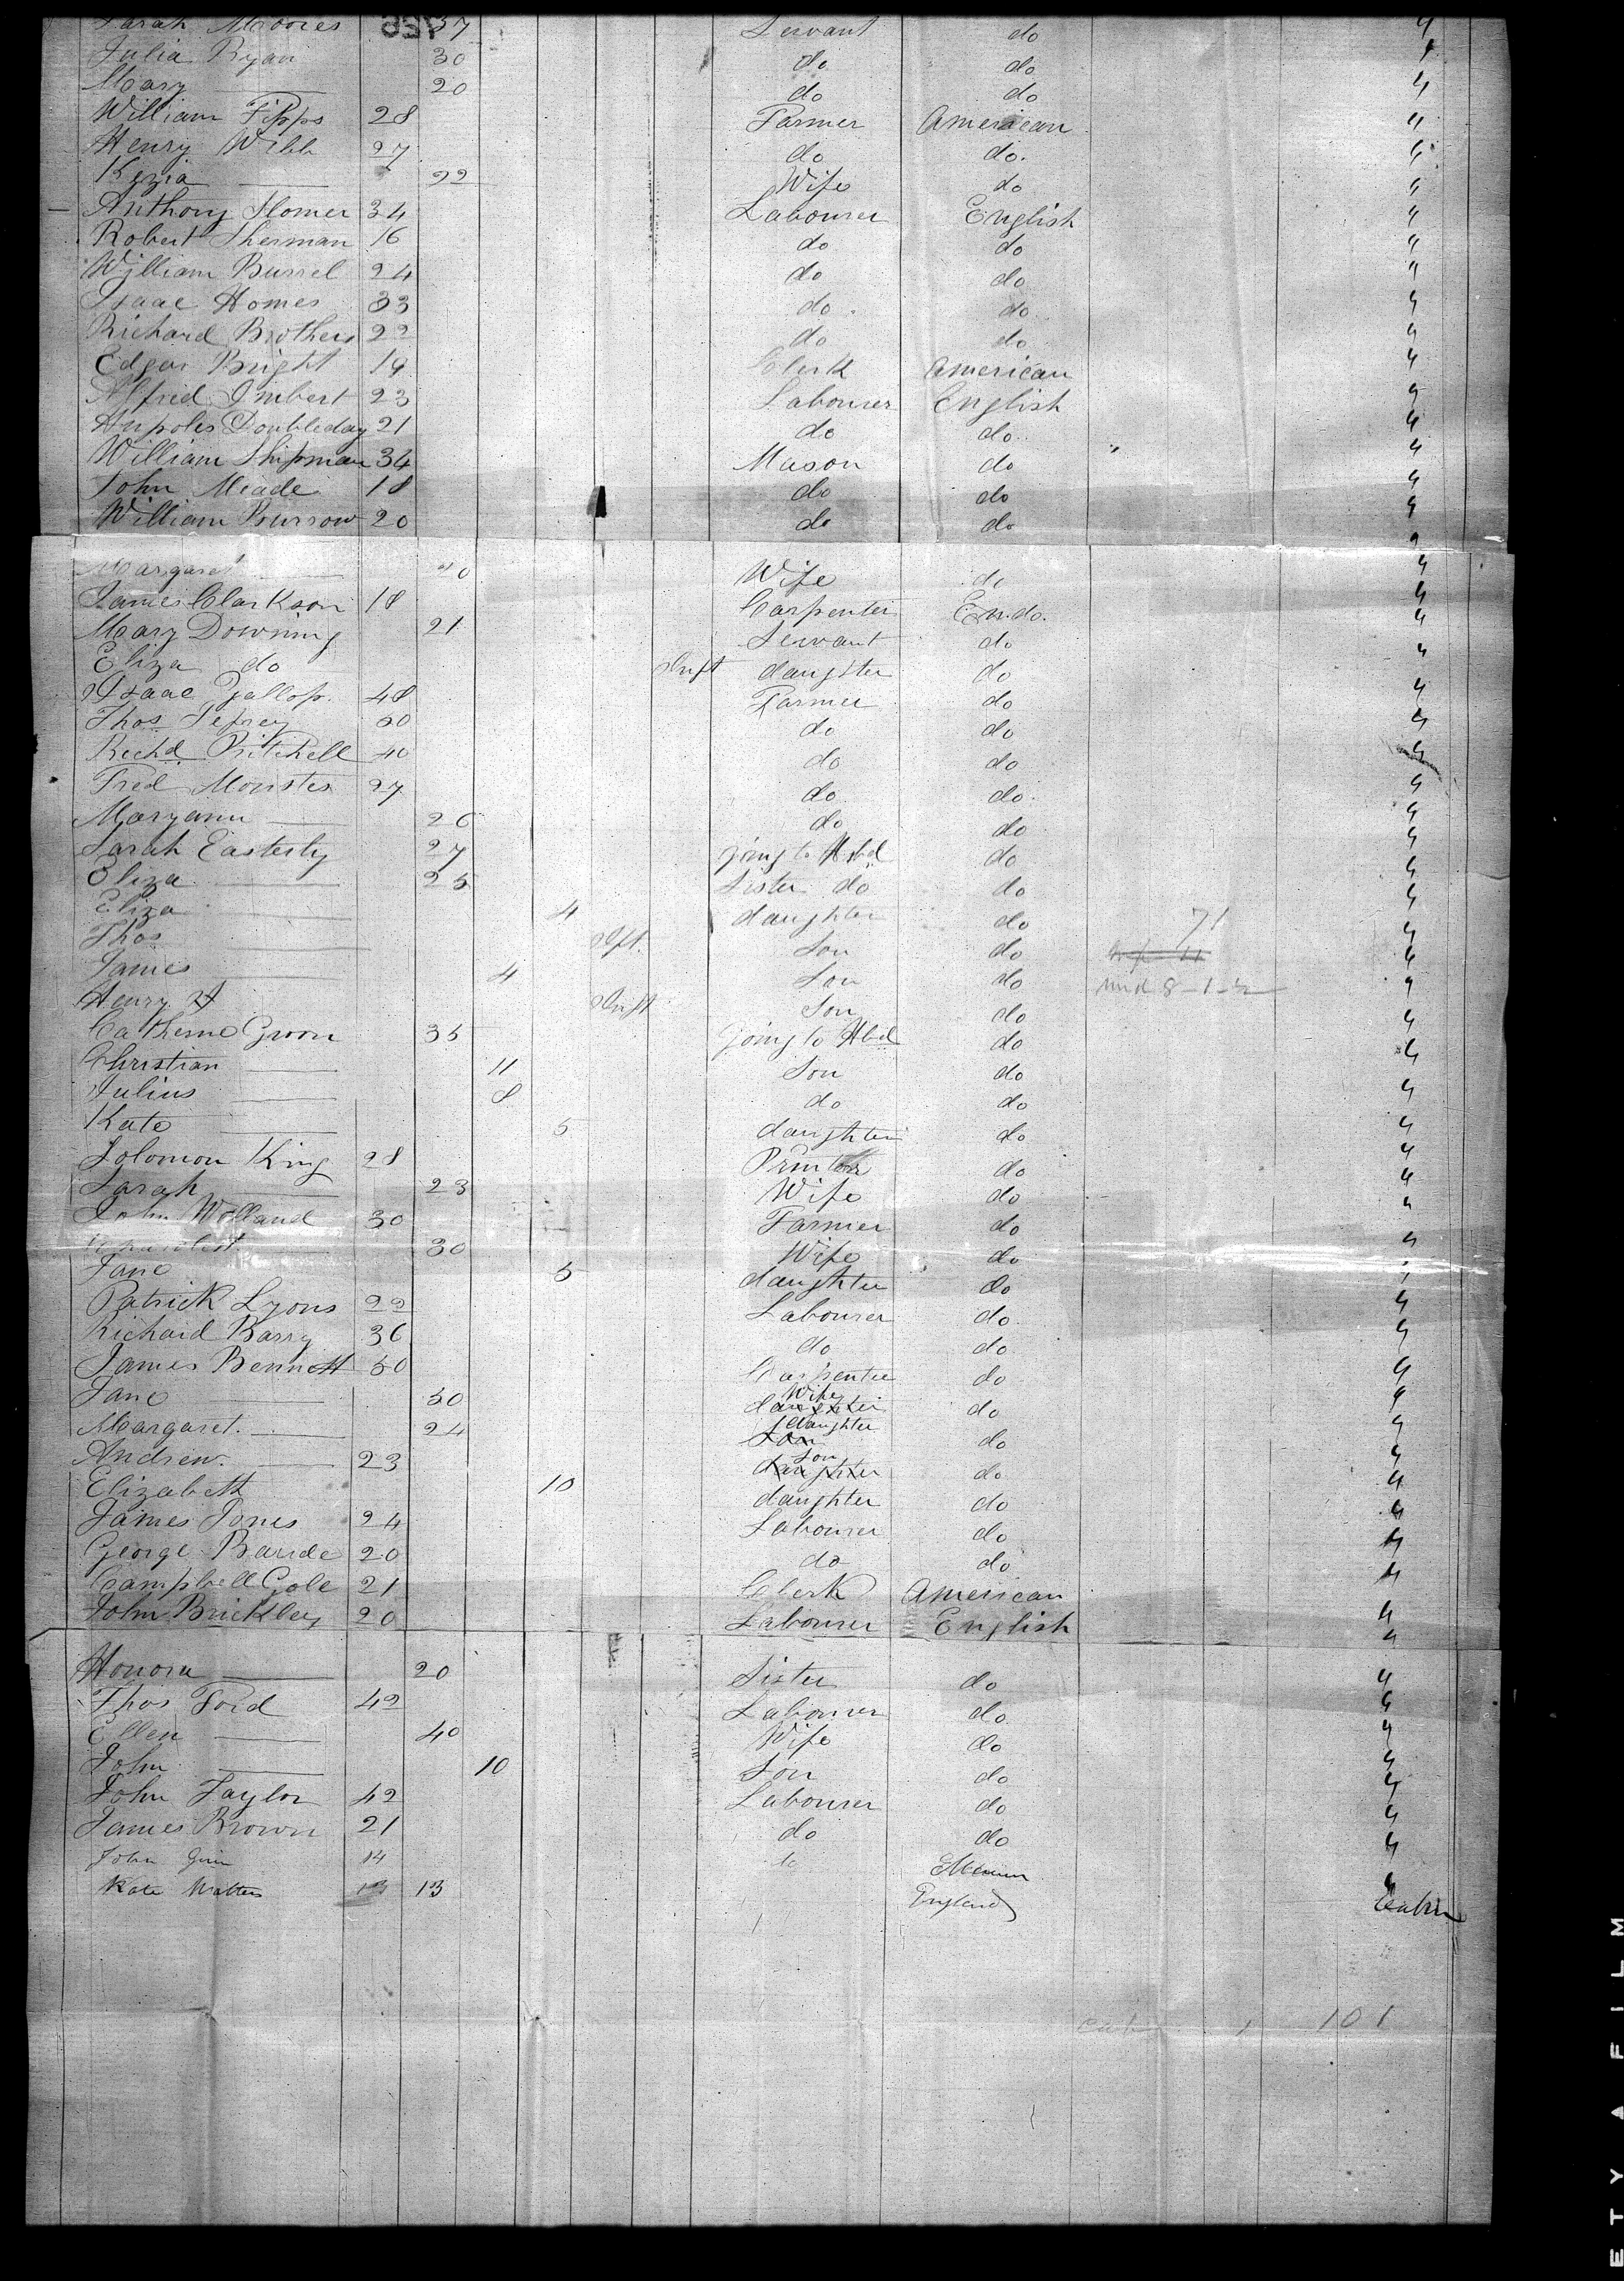 Sarah Moores 37 Servant do 4
Julia Ryan 30 do do 4
Mary 20 do do 4
William Fipps 28 Farmer American 4
Henry Webb 27 do do. 4
Kezia 22 Wife do 4
Anthony Homer 34 Labourer English 4
Robert Sherman 16 do do 4
William Burrel 24 do do 4
Isaac Homes 33 do do 4
Richard Brothers 22 do do 4
Edgar Bright 19 Clerk American 4
Alfred Imbert 23 Labourer English 4
Doubleday 21 do do 4
William Shipman 34 Mason do 4
John Meade 18 do do 4
William Burrow 20 do do 4
Margaret 40 Wife do 4
James Clarkson 18 Carpenter En.do. 4
Mary Downing 21 Servant do 4
Eliza do Inft daugter do 4
Isaac Gallop. 48 Farmer do 4
Thos Jefrey 50 do do 4
Richd Pritchell 40 do do 4
Fred Monster 27 do do 4
Maryann 26 do do 4
Sarah Easterby 27 going to Hsbd do 4
Eliza 25 Sister do do 4
Eliza 4 daughter do 71 4
Thos Ift. Son do 4
James 4 Son do 4
Henry H Inft Son do 4
Catherine Groon 35 going to Hbd do 4
Christian 11 Son do 4
Julius 8 do do 4
Kate 5 daughter do 4
Solomon King 28 Printer do 4
Sarah 23 Wife do 4
John Welland 30 Farmer do 4
30 Wife do 4
Jane 5 daughter do 4
Patrick Lyons 22 Labourer do 4
Richard Barry 36 do do 4
James Bennett 50 Carpenter do 4
Jane 50 Wife daughter do 4
Margaret. 24 daughter Son do 4
Andrew. 23 Son daughter do 4
Elizabeth 10 daughter do 4
James Jones 24 Labourer do 4
George Baride 20 do do 4
Campbell Cole 21 Clerk American 4
John Brickley 20 Labourer English 4
Honora 20 Sister do 4
Thos Ford 42 Labourer do 4
Ellen 40 Wife do 4
John 10 Son do 4
John Taylor 42 Labourer do 4
James Brown 21 do do 4
John 14 do
Kate Walters 13 13 England Cabin
101
ETY A FILM